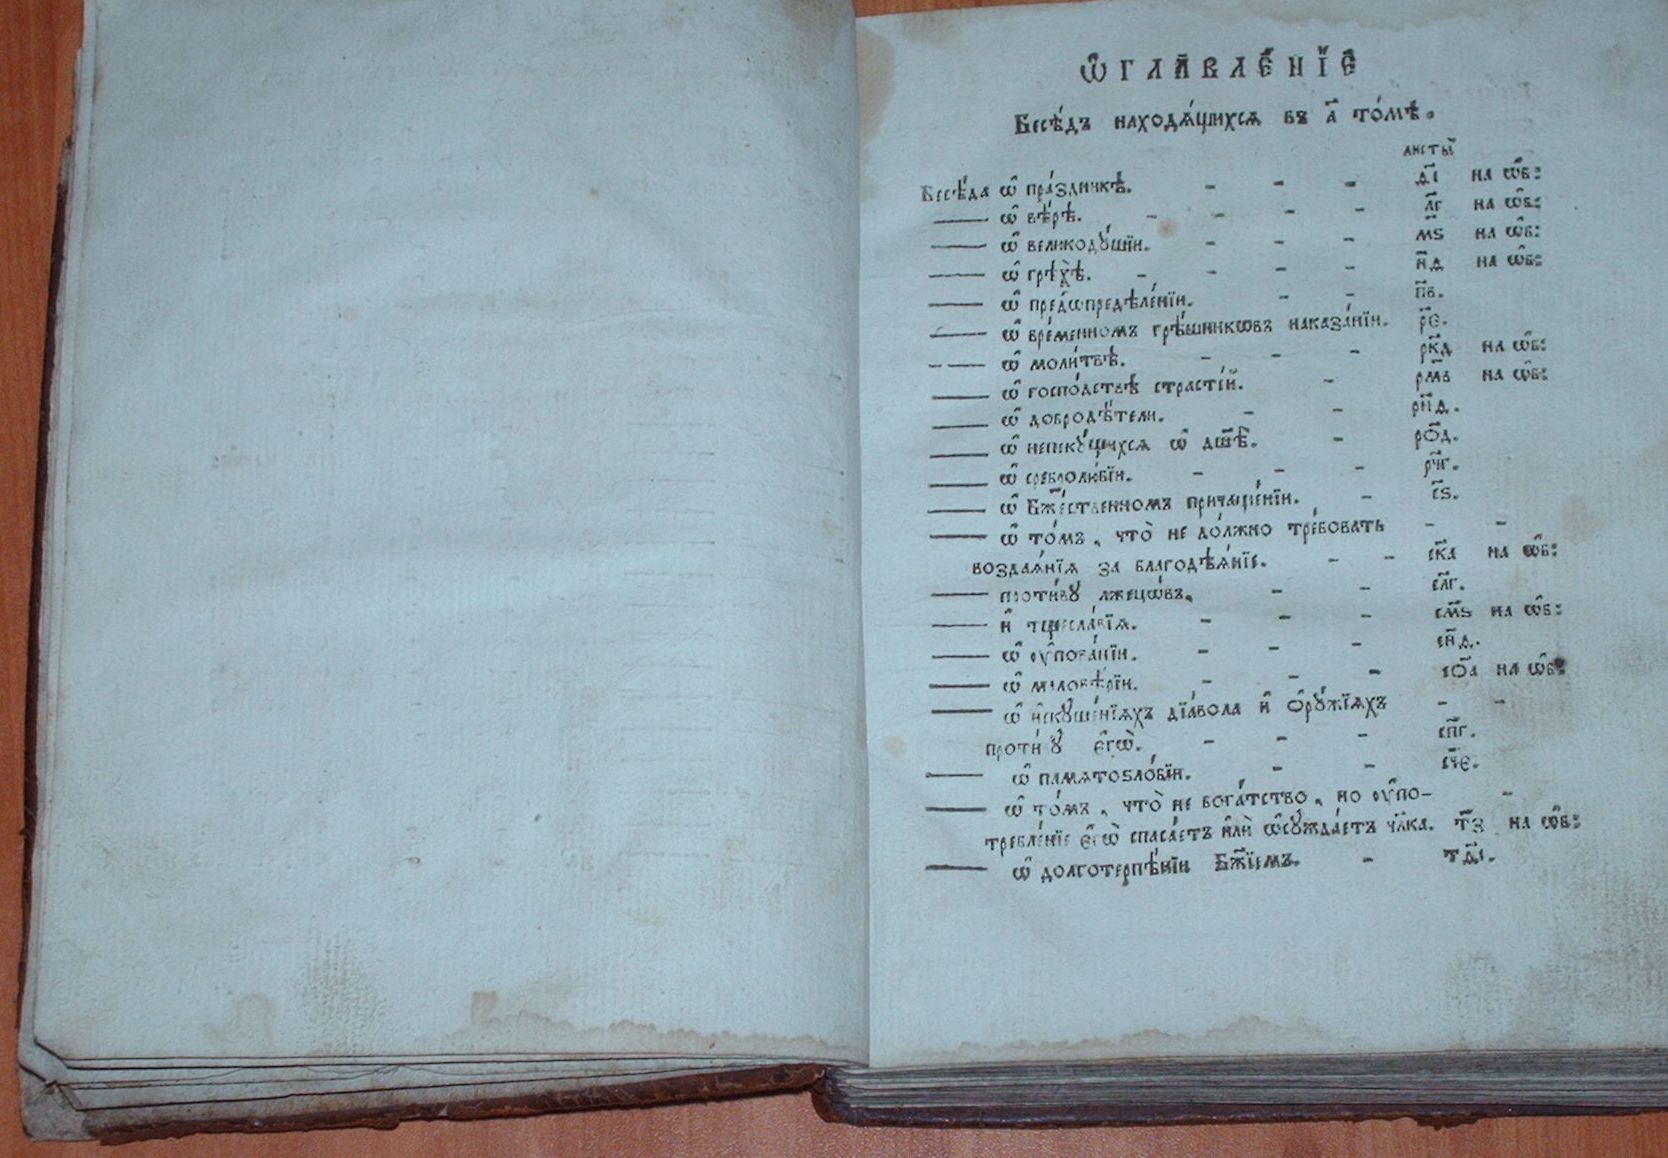 Ѡ҆ГЛАВЛЕ́НЇЕ
Бесѣ́дъ находѧ́щихсѧ въ а҃ то́мѣ.
листы̀
Бесѣ́да ѡ҆ пра́здникѣ. - - - д҃і на ѡ҆б:
—— ѡ҆ вѣ́рѣ. - - - - л҃г на ѡ҆б:
—— ѡ҆ великодꙋ́шїи. - - - м҃ѕ на ѡ҆б:
—— ѡ҆ грѣхѣ̀. - - - - н҃д на ѡ҆б:
—— ѡ҆ предѡпредѣле́нїи. - - п҃в.
—— ѡ҆ вре́менномъ грѣ́шникѡвъ наказа́нїи. р҃є.
—— ѡ҆ моли́твѣ. - - - рк҃д на ѡ҆б:
—— ѡ҆ госпо́дствѣ страсте́й. - рм҃в на ѡ҆б:
—— ѡ҆ добродѣ́тели. - - рн҃д.
—— ѡ҆ непекꙋ́щихсѧ ѡ҆ дш҃ѣ̀. - рѻ҃д.
—— ѡ҆ сребролю́бїи. - - - рч҃г.
—— ѡ҆ Бж҃е́ственномъ причаще́нїи. - с҃ѕ.
—— ѡ҆ то́мъ, что̀ не до́лжно тре́бовать - -
воздаѧ́нїѧ за благодѣѧ́нїе. - - ск҃а на ѡ҆б:
—— проти́вꙋ лжецѡ́въ. - - сл҃г.
—— и҆ тщесла́вїѧ. - - - см҃ѕ на ѡ҆б:
—— ѡ҆ ᲂу҆пова́нїи. - - - сн҃д.
—— ѡ҆ маловѣ́рїи. - - - сѻ҃а на ѡ҆б:
—— ѡ҆ и҆скꙋше́нїѧхъ дїа́вола и҆ ѻ҆рꙋ́жїѧхъ - -
проти́вꙋ є҆гѡ̀. - - - сп҃г.
—— ѡ҆ памѧтоѕло́бїи. - - сч҃є.
—— ѡ҆ то́мъ, что̀ не бога́тство, но ᲂу҆по- -
требле́нїе є҆гѡ̀ спаса́етъ и҆лѝ ѡ҆сꙋжда́етъ чл҃ка. т҃з на ѡ҆б:
—— ѡ҆ долготерпѣ́нїи Бж҃їемъ. - тд҃і.